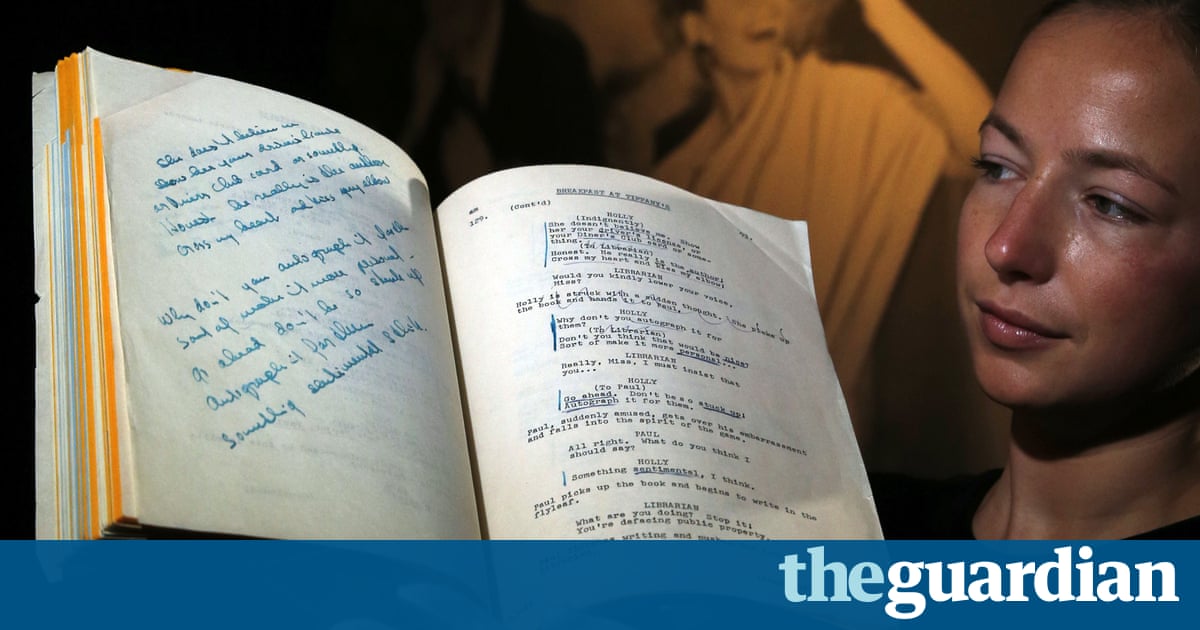 She doesn't believe me
show her your driver's license
or Diner's Club card or something.
Honest. He really is the author
cross my heart and kiss my elbow
Why don't you autograph it for them
sort of make it more personal -
go ahead don't be so stuck up
autograph it for them
something sentimental I think.
BREAKFAST AT TIFFANY'S
am
129. (Cont'd)
HOLLY
(Indignantly)
She doesn't believe me. Show
her your driver's license, or
your Diner's Club card or some-
thing.
(To Librarian)
Honest. He really is the author;
Cross my heart and kiss my elbow;
LIBRARIAN
Would you kindly lower your voice,
Miss?
Holly is struck with a sudden thought. She picks up
the book and hands it to Paul.
HOLLY
Why don't you autograph it for
them?
(To Librarian)
Don't you think that would be nice?
Sort of make it more personal...
LIBRARIAN
Really, Miss, I must insist that
you...
HOLLY
(To Paul)
Go ahead. Don't be so stuck up;
Autograph it for them.
Paul, suddenly amused, gets over his embarrassment
and falls into the spirit of the game.
PAUL
All right. What do you think I
should say?
HOLLY
Something sentimental, I think.
Paul picks up the book and begins to write in the
flyleaf.
LIBRARIAN
What are you doing? Stop it;
You're defacing public property.
writing and
theguardian